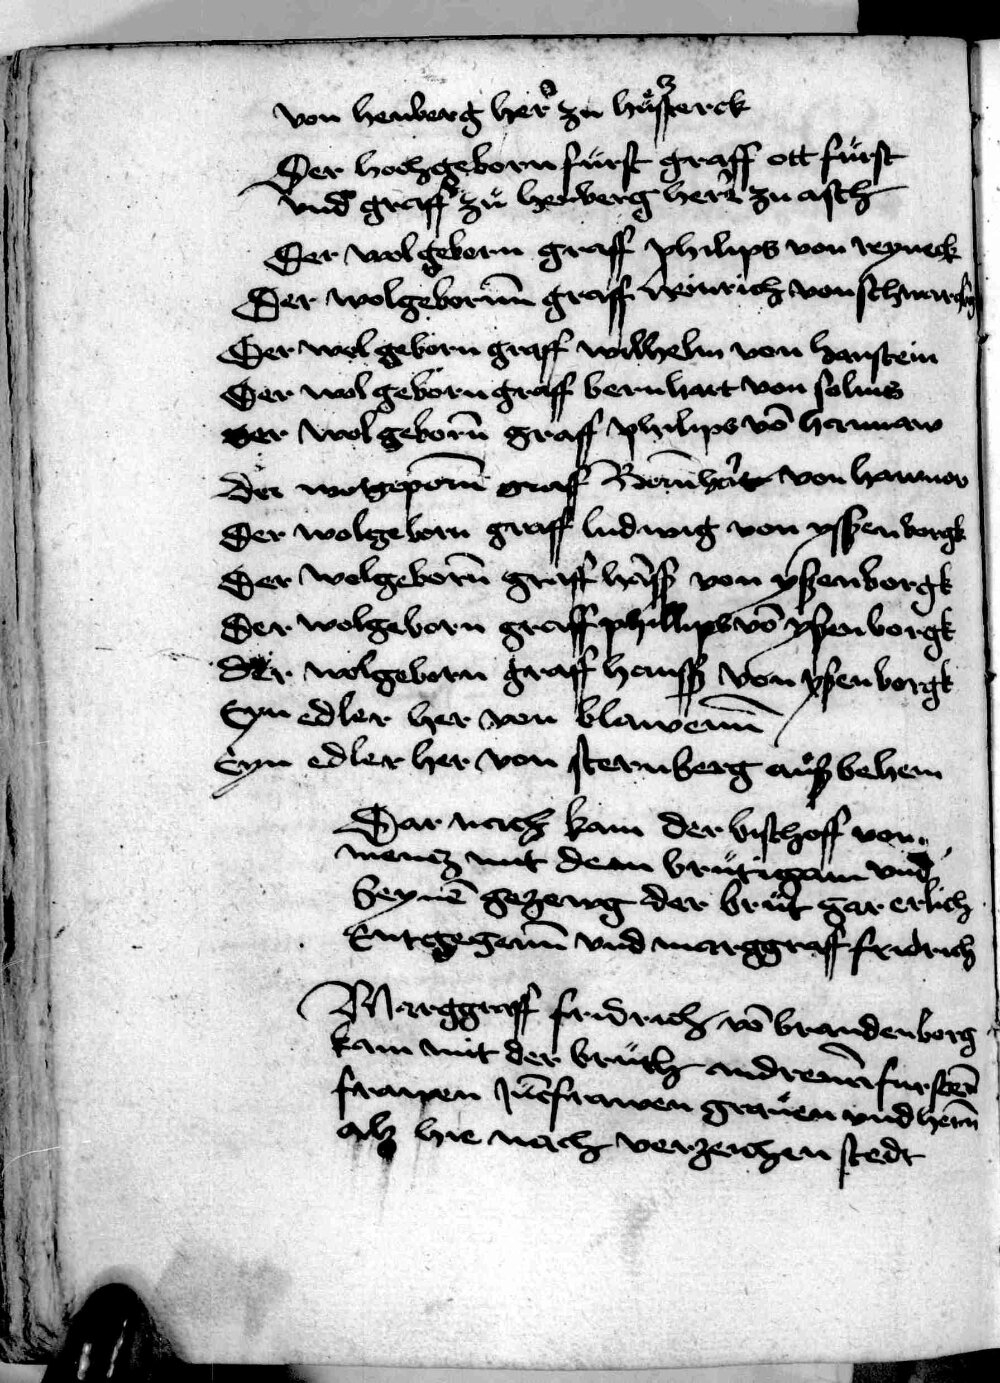 von henberg her zu
Der hochgeborn fürst graff ott fürst
vnd graff zů henberg her zu asch
Der wolgeborn graff philips von reyneck
Der wolgeborun graff heinrich von
Der wolgeborn graff wilhelm von hanstein
Der wolgeborn graff bernhart von solms
Der wolgeborn graff philips vō hannaw
Der wolgeporn graf von hannow
Der wolgeborn graff ludwig von yssenborgk
Der wolgeborn graff hāss von yssenborgk
Der wolgeborn graff phillips vō yssenborgk
der wolgeborn graff hanss von yssenborgk
Eyn edler her von blawenn
Eyn edler her von sternberg auß behem
Dar nach kam der bischoff von
mencz mit dem brütigam vnd
seynē gezewg der brüt gar erlich
Entgegenn vnd marggraff fridrich
Marggraff fridrich vō brandenborg
kam mit der brüth andrenn fursten
frawen Jūcfrawen grauen vnd hern
alß hie nach verzeichen stedt